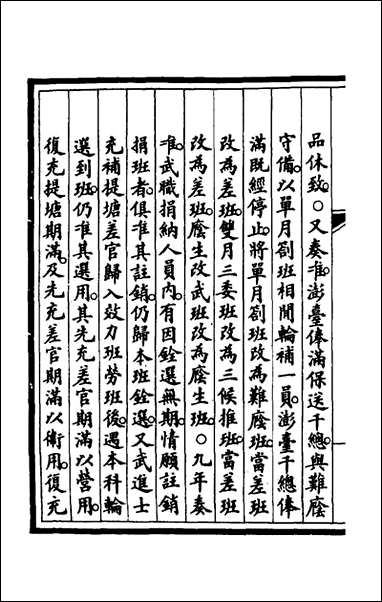 品休致。○又奏准。澎臺俸滿保送千總。與難廕
守備。以單月劄班相間輪補一員。澎臺千總俸
滿既經停止。將單月劄班改為難廕班。當差班
改為差班。雙月三委班改為三候推班。當差班
改為差班。廕生改武班改為廕生班。○九年奏
准。武職捐納人員內。有因銓選無期。情願註銷
捐班者。俱准其註銷。仍歸本班銓選。又武進士
充補提塘差官。歸入效力班勞班後。遇本科輪
選到班。仍准其選用。其先充差官期滿以營用。
復充提塘期滿。及先充差官期滿以衛用。復充